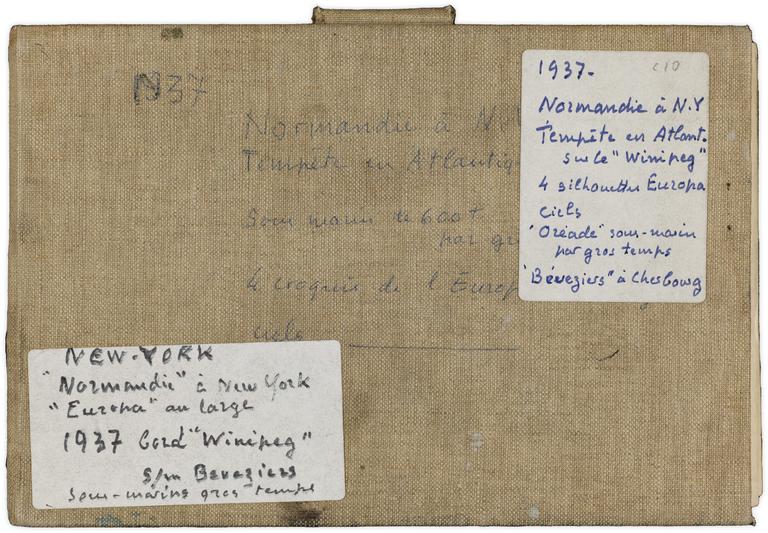 1937
Normandie à N.Y
Tempête en Atlantiq
Sous marin de 600t
par gr
4 croquis de l'Europ
ciels
1937. C10
Normandie à N.Y
Tempête en Atlant.
sur le "Winipeg"
4 silhouettes Europa
ciels
"Oréade" sous-marin
par gros temps
"Béveziers" à Cherbourg
NEW-YORK
"Normandie" à New York
"Europa" au large
1937 Cord "Winipeg"
s/m Beveziers
sous-marins gros temps